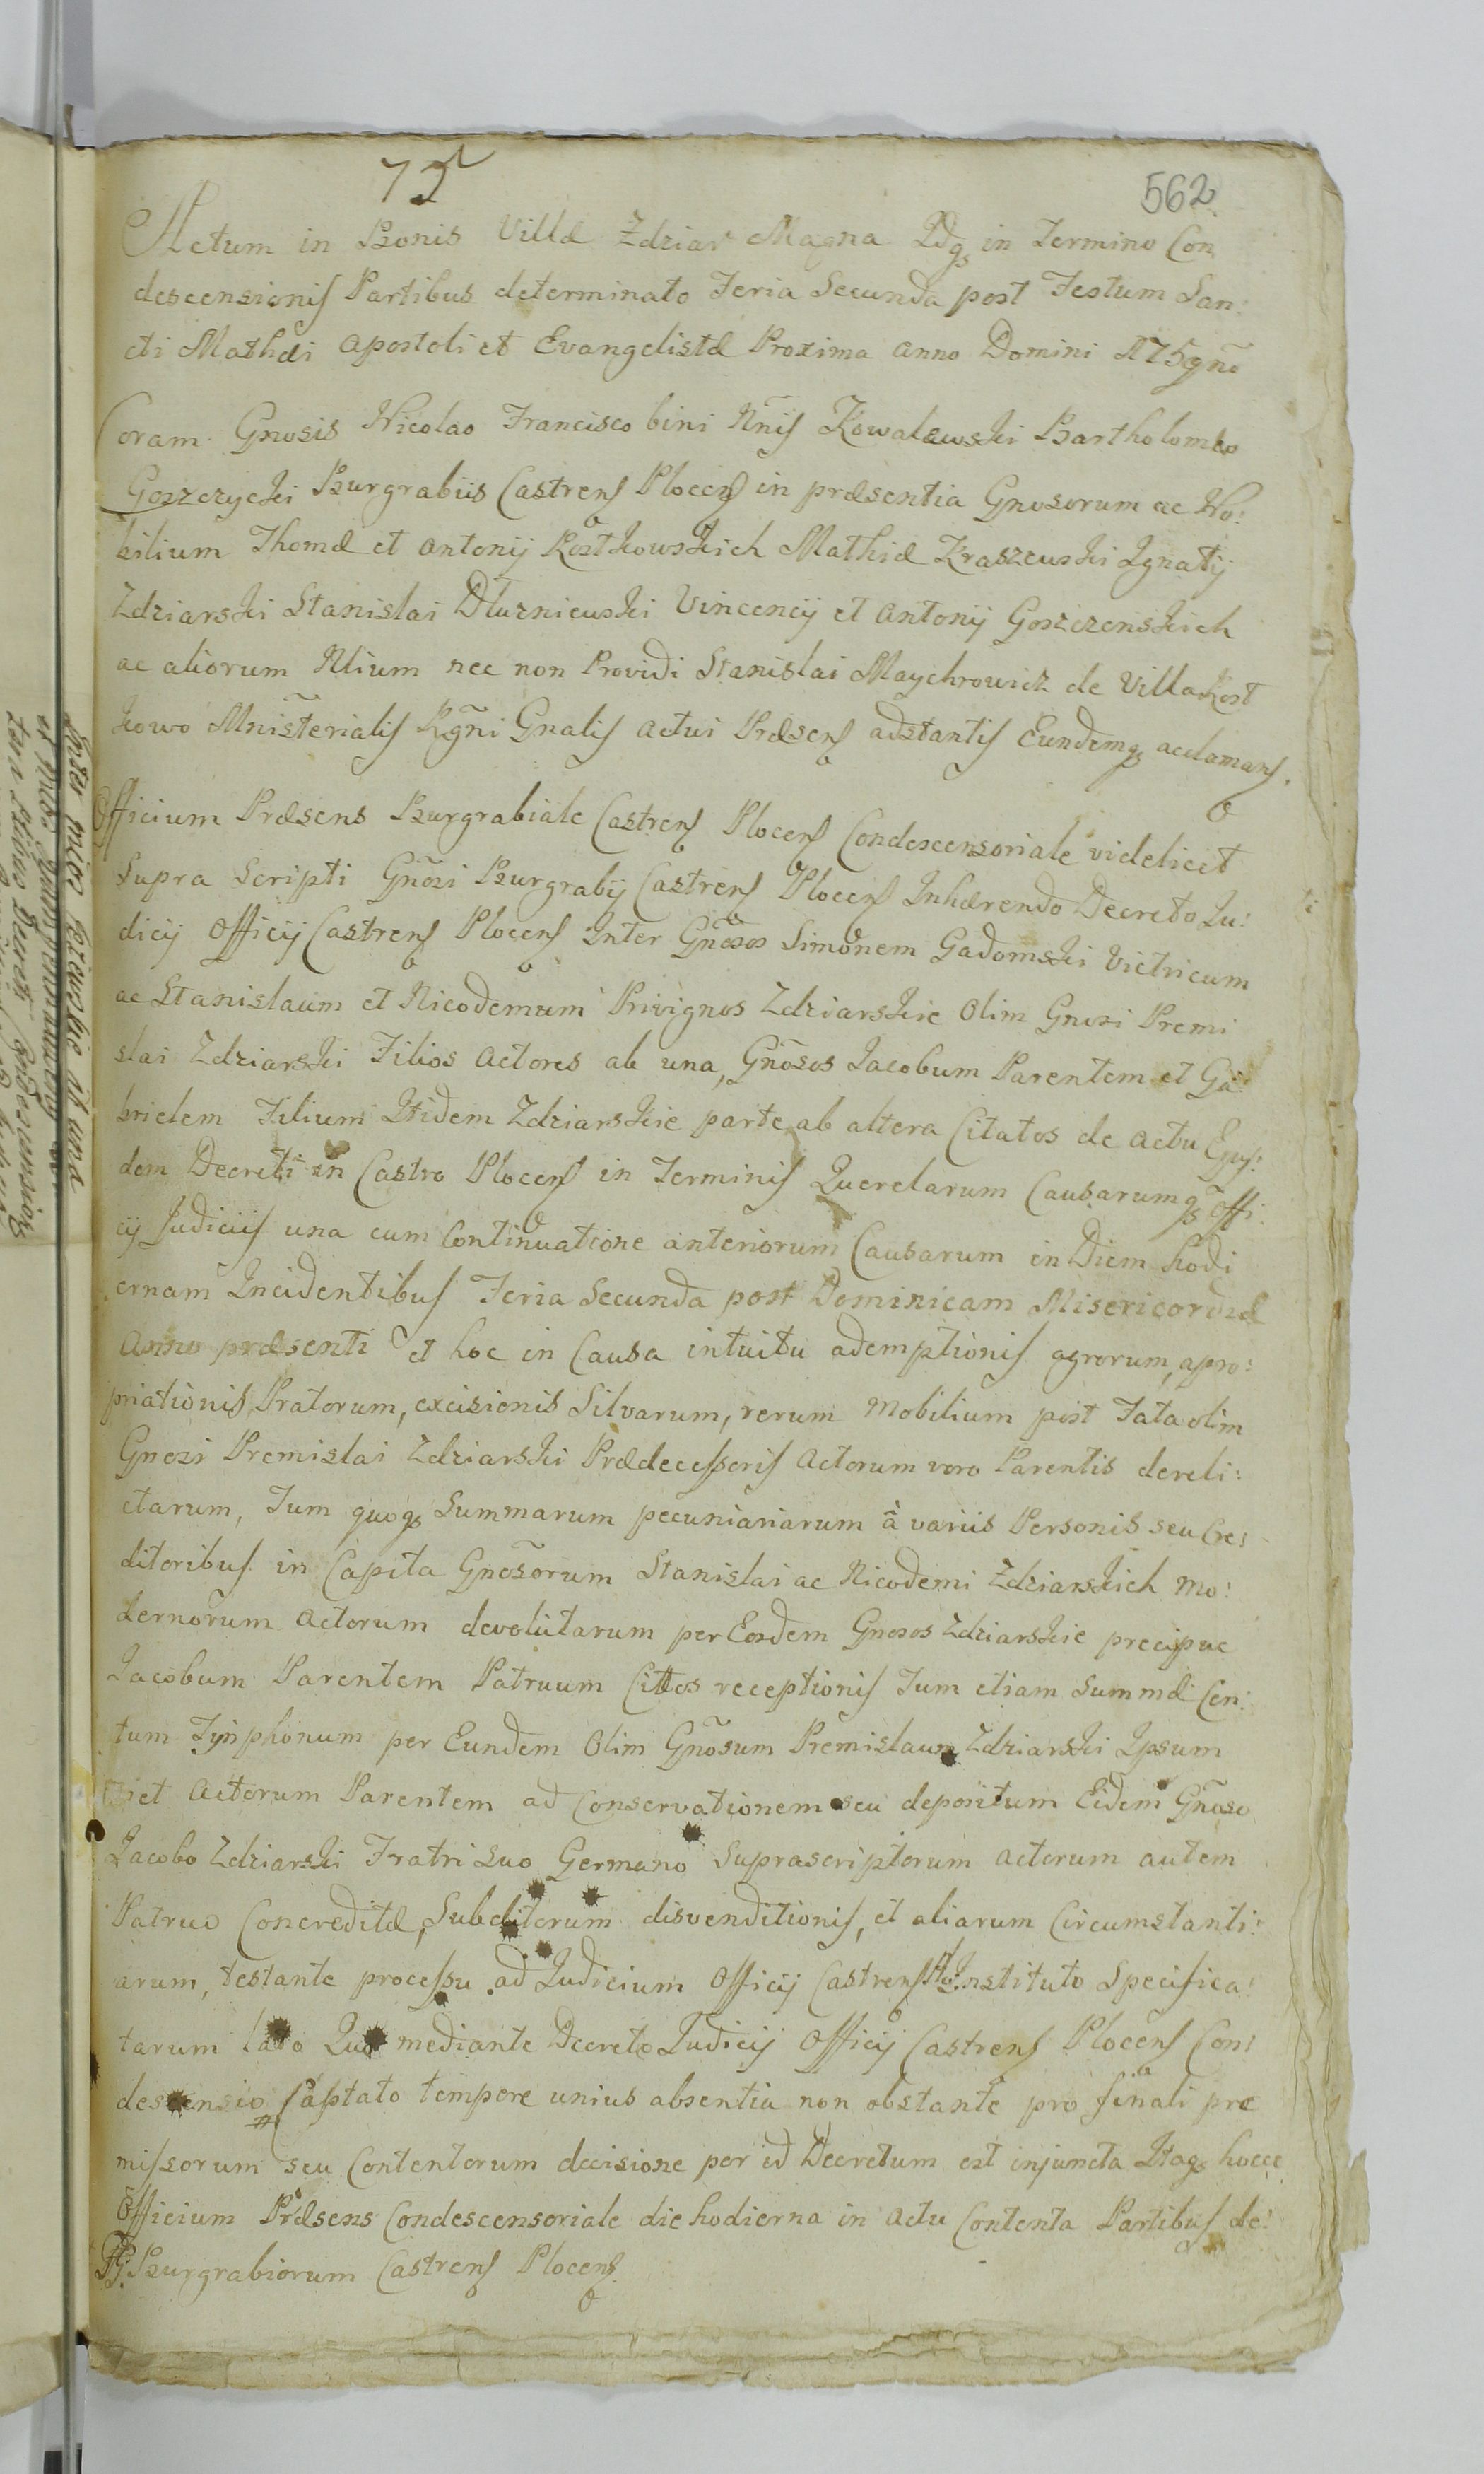 75
562
Actum in Bonis Villæ Zdziar Magna Idq in Termino Con
descensionis Partibus determinato Feria Secunda post Festum San:
cti Mathæi Apostoli et Evangelistæ Proxima Anno Domini 175gno
Coram Gnosis Nicolao Francisco bini Nnis Kowalewski Bartholomeo
Goszczycki Burgrabiis Castrens Plocens in præsentia Gnosorum ac No:
bilium Thomæ et Antonij Rostkowskich Mathiæ Kraszewski Ignatij
Zdziarski Stanislai Dłuzniewski Vincencij et Antonij Goszczenskich
ac aliorum Nlium nec non Providi Stanislai Maychrowicz de Villa Rost
kowo Mnisterialis Rgni Gnalis Actui Præsens adstantis Eundemq acclamans.
Officium Præsens Burgrabiale Castrens Plocens Condescensoriale videlicet
Supra Scripti Gnosi Burgrabij Castrens Plocens Inhærendo Decreto Iu:
dicij Officij Castrens Plocens Inter Gnosos Simonem Gadomski Victricum
ac Stanislaum et Nicodemum Privignos Zdziarskie Olim Gnosi Premi
slai Zdziarski Filios Actores ab una, Gnosos Iacobum Parentem et Ga:
brielem Filium Itidem Zdziarskie parte ab altera Citatos de Actu Ejus:
dem Decreti in Castro Plocens in Terminis Querelarum Causarumq Offi:
cij Judiciis una cum Continuatione anteriorum Causarum in Diem hodi
ernam Incidentibus Feria Secunda post Dominicam Misericordiæ
Anno præsenti et hoc in Causa intuitu ademptionis agrorum, apro:
priationis Pratorum, excisionis Silvarum, rerum Mobilium post Fata olim
Gnosi Premislai Zdziarski Prædecessoris Actorum vero Parentis dereli:
ctarum, Tum quoq Summarum pecuniariarum â variis Personis seu Cre:
ditoribus in Capita Gnosorum Stanislai ac Nicodemi Zdziarskich Mo:
dernorum Actorum devolutarum per Eosdem Gnosos Zdziarskie precipue
Iacobum Parentem Patruum Cittos receptionis Tum etiam Summæ Cen:
tum Tynphonum per Eundem Olim Gnosum Premislaum Zdziarski Ipsum
et Actorum Parentem ad Conservationem seu depositum Eidem Gnoso
Iacobo Zdziarski Fratri Suo Germano Suprascriptorum Actorum autem
Patruo Concreditæ, Subditorum disvenditionis, et aliarum Circumstanti:
arum, testante processu ad Iudicium Officij Castrens Instituto Specifica:
tarum lato Quo mediante Decreto Iudicij Officij Castrens Plocens Con:
descensio Captato tempore unius absentia non obstante pro finali pre
missorum seu Contentorum decisione per id Decretum est injuncta Itaq hocce
Officium Præsens Condescensoriale die hodierna in Actu Contenta Partibus de:
Burgrabiorum Castrens Plocens